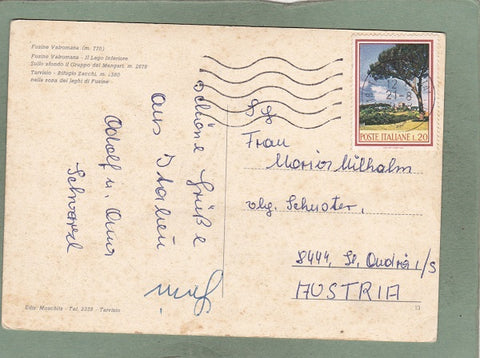 Fusine Valromana (m. 770)
Fusine Valromana - Il Lago Inferiore
Sullo sfondo il Gruppo del Mangart m. 2678
Tarvisio - Rifugio Zacchi, m. 1380
nella zona dei laghi di Fusine
Schöne Grüße
aus Italien
Adolf u. Anna
POSTE ITALIANE L. 20
Frau
Maria Wilhalm
vlg. Schuster,
8444, St. Andrä i/S
AUSTRIA
Ediz. Moschitz - Tel. 2259 - Tarvisio